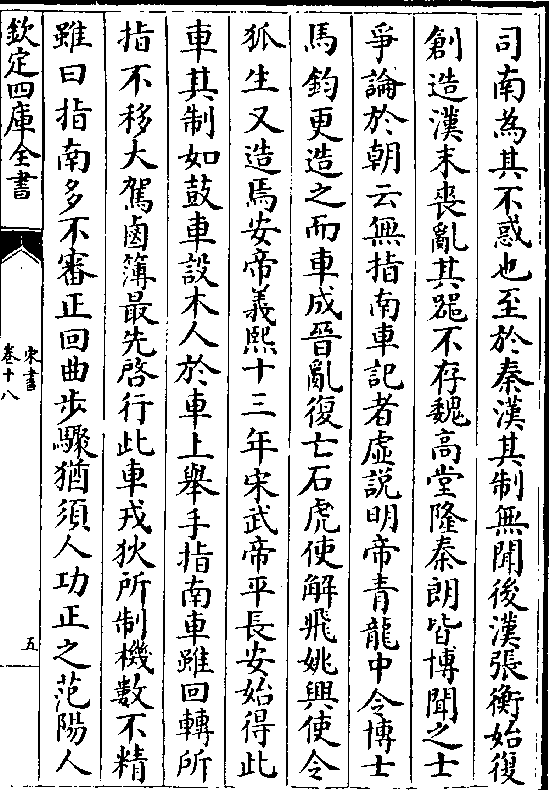 司南為其不惑也至於秦漢其制無聞後漢張衡始復
創造漢末喪亂其器不存魏高堂隆秦朗皆博聞之士
爭論於朝云無指南車記者虛説明帝青龍中令博士
馬鈞更造之而車成晉亂復亡石虎使解飛姚興使令
狐生又造焉安帝義熙十三年宋武帝平長安始得此
車其制如鼓車設木人於車上舉手指南車雖回轉所
指不移大駕鹵簿最先啓行此車戎狄所制機數不精
雖曰指南多不審正回曲步驟猶須人功正之范陽人
欽定四庫全書
宋書
卷十八
五